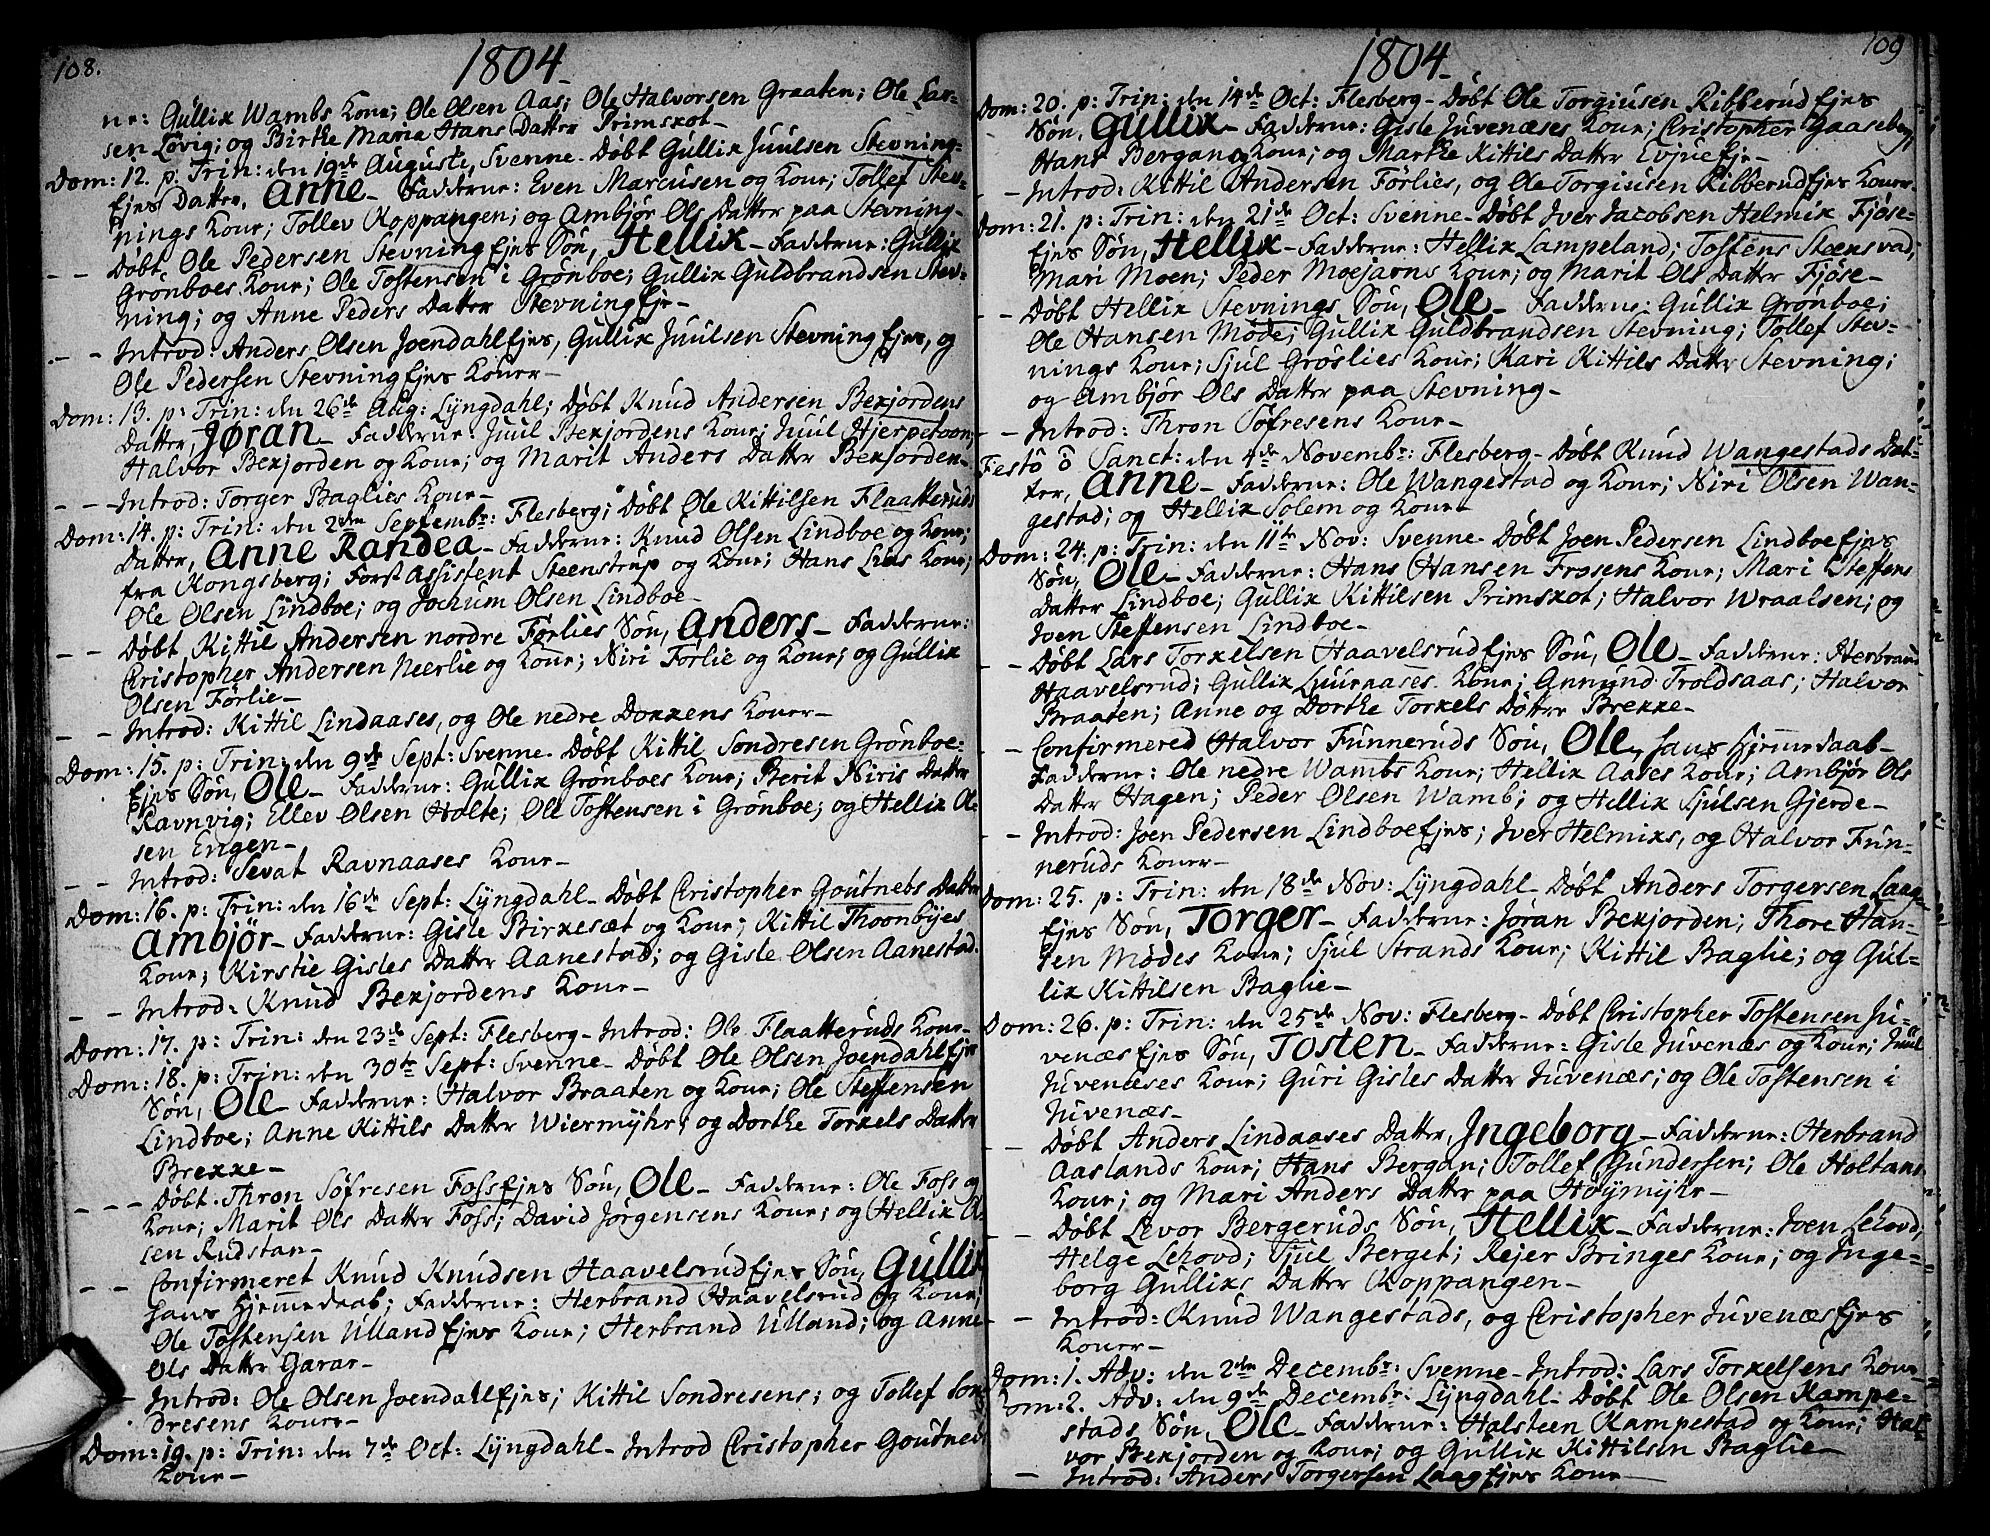 108.
1804
ne: Gullix Wambs Kone; Ole Olsen Aas; Ole Halvorsen Graaten; Ole Lar-
sen Løvig; og Birthe Maria Hans Datter Primskot-
Dom: 12. p: Trin: den 19de Auguste, Svenne- Døbt Gullix Juulsen Stevning-
Ejes Datter, Anne- Fadderne: Even Marcusen og Kone; Tollef Stev-
nings Kone; Tollev Koppangen; og Ambjør Ols Datter paa Stevning-
- - Døbt Ole Pedersen Stevning Ejes Søn, Hellix- Fadderne: Gullix
Grønboes Kone; Ole Tostensen i Grønboe; Gullix Guldbrandsen Stev-
ning; og Anne Peders Datter Stevning Eje-
- - Introd: Anders Olsen Joendahl Ejes, Gullix Juulsen Stevning Ejes, og
Ole Pedersen Stevning Ejes Koner-
Dom: 13. p: Trin: den 26de Aug: Lyngdahl; Døbt Knud Andersen Bexjordens
Datter, Jøran- Fadderne: Juul Bexjordens Kone; Juul Hjerpetoon;
Halvor Bexjorden og Kone; og Marit Anders Datter Bexjorden-
- - - Introd: Torger Baglies Kone-
Dom: 14. p: Trin: den 2den Septembr: Flesberg; Døbt Ole Kittilsen Flaatteruds
Datter, Anne Randea- Fadderne: Knud Olsen Lindboe og Kone;
fra Kongsberg; Forst Assistent Steenstrup og Kone; Hans Lies Kone;
Ole Olsen Lindboe; og Jochum Olsen Lindboe-
- - Døbt Kittil Andersen nordre Førlies Søn, Anders- Fadderne:
Christopher Andersen Neerlie og Kone; Niri Førlie og Kone; og Gullix
Olsen Førlie-
- - Introd: Kittil Lindaases, og Ole nedre Doxxens Koner-
Dom: 15. p: Trin: den 9de Sept: Svenne- Døbt Kittil Sondresen Grønboe-
Ejes Søn, Ole- Fadderne: Gullix Grønboes Kone; Berit Niris Datter
Ravnvig; Ellev Olsen Holte; Ole Tostensen i Grønboe; og Hellix Ol-
sen Engen-
- - Introd: Sevat Ravnaases Kone-
Dom: 16. p: Trin: den 16de Sept: Lyngdahl- Døbt Christopher Goutnebs Datter
Ambjør- Fadderne: Gisle Birxesæt og Kone; Kittil Thoonbyes
Kone; Kirstie Gisles Datter Aanestad; og Gisle Olsen Aanestad.
- - Introd: Knud Bexjordens Kone-
Dom: 17. p: Trin: den 23de Sept: Flesberg- Introd: Ole Flaatteruds Kone-
Dom: 18. p: Trin: den 30te Sept: Svenne- Døbt Ole Olsen Joendahl Ejes
Søn, Ole- Fadderne: Halvor Braaten og Kone; Ole Steffensen
Lindboe; Anne Kittils Datter Wiermyhr; og Dorthe Torxels Datter
Brexxe-
- - - Døbt Thron Søfresen Foss Ejes Søn, Ole- Fadderne: Ole Foss og
Kone; Marit Ols Datter Foss; David Jørgensens Kone; og Hellix
sen Rudstan-
- - Confirmeret Knud Knudsen Haavelsrud Ejes Søn, Gullix
hans Hjemmedaab; Fadderne: Herbrand Haavelsrud og Kone;
Ole Tostensen Ulland Ejes Kone; Herbrand Ulland; og Anne
Ols Datter Garar-
- Introd: Ole Olsen Joendahl Ejes; Kittil Sondresens; og Tollef Son-
dresens Koner-
Dom: 19. p: Trin: den 7de Oct: Lyngdahl- Introd Christopher Goutnebs
Kone-
109
1804
Dom: 20. p: Trin: den 14de Oct: Flesberg- Døbt Ole Torgiusen Ribberud Ejes
Søn, Gullix- Fadderne: Gisle Juvenæses Kone; Christopher Gaaseberg;
Hans Bergans Kone; og Marthe Kittils Datter Evjue Eje-
- - Introd: Kittil Andersen Førlies, og Ole Torgiusen Ribberud Ejes Koner.
Dom: 21. p: Trin: den 21de Oct: Svenne- Døbt Iver Jacobsen Helmix Fjøse-
Ejes Søn, Hellix- Fadderne: Hellix Lampeland; Tostens Steensvad;
Mari Moen; Peder Moejarns Kone; og Marit Ols Datter Fjøse-
- - Døbt Hellix Stevnings Søn, Ole- Fadderne: Gullix Grønboe;
Ole Hansen Møde; Gullix Guldbrandsen Stevning; Tollef Stev-
nings Kone; Sjul Grøslies Kone; Kari Kittils Datter Stevning;
og Ambjør Ols Datter paa Stevning-
- Introd: Thron Søfresens Kone-
Festo O Sanct: den 4de Novembr: Flesberg- Døbt Knud Wangestads Dat-
ter, Anne- Fadderne: Ole Wangestad og Kone; Niri Olsen Wan-
gestad; og Hellix Solem og Kone-
Dom: 24. p: Trin: den 11te Nov: Svenne- Døbt Joen Pedersen Lindboe Ejes
Søn, Ole- Fadderne: Hans Hansen Frosens Kone; Mari Steffens
Datter Lindboe; Gullix Kittilsen Primskot; Halvor Wraalsen; og
Iven Steffensen Lindboe-
- Døbt Lars Torxelsen Haavelsrud Ejes Søn, Ole- Fadderne: Herbrand
Haavelsrud; Gullix Luuraases Kone; Annund Troldsaas; Halvor
Braaten; Anne og Dorthe Torxels Døttre Brexxe-
- Confirmered Halvor Funneruds Søn, Ole, hans Hjemmedaab-
Fadderne: Ole nedre Wambs Kone; Hellix Aases Kone; Ambjør Ols
Datter Hagen; Peder Olsen Wamb; og Hellix Sjulsen Gjerde-
- Introd: Joen Pedersen Lindboe Ejes; Iver Helmixs, og Halvor Fun-
neruds Koner-
Dom: 25. p: Trin: den 18de Nov: Lyngdahl- Døbt Anders Torgersen Laag-
Ejes Søn, Torger- Fadderne: Jøran Bexjorden; Thore Han-
sen Mødes Kone; Sjul Strands Kone; Kittil Baglie; og Gul-
lix Kittilsen Baglie-
Dom: 26. p: Trin: den 25de Nov: Flesberg- Døbt Christopher Tostensen Ju-
venæs Ejes Søn, Tosten- Fadderne: Gisle Juvenæs og Kone; Juul
Juvenæses Kone; Guri Gisles Datter Juvenæs; og Ole Tostensen i
Juvenæs-
- Døbt Anders Lindaases Datter, Ingeborg- Fadderne: Herbrand
Aaslands Kone; Hans Bergan; Tollef Gundersen; Ole Holtans
Kone; og Mari Anders Datter paa Høymyhr-
- - Døbt Levor Bergeruds Søn, Hellix- Fadderne: Joen Lehovd;
Helge Lehovd; Sjul Berget; Rejer Bringes Kone; og Inge-
borg Gullixs Datter Koppangen-
- - Introd: Knud Wangestads, og Christopher Juvenæs Ejes
Koner-
Dom: 1. Adv: den 2den Decembr: Svenne- Introd: Lars Torxelsens Kone-
Dom: 2. Adv: den 9de Decembr: Lyngdahl- Døbt Ole Olsen Kampe-
stads Søn, Ole- Fadderne: Halsteen Kampestad og Kone; Hal-
vor Bexjorden og Kone; og Gullix Kittilsen Baglie-
- Introd: Anders Torgersen Laag Ejes Kone-